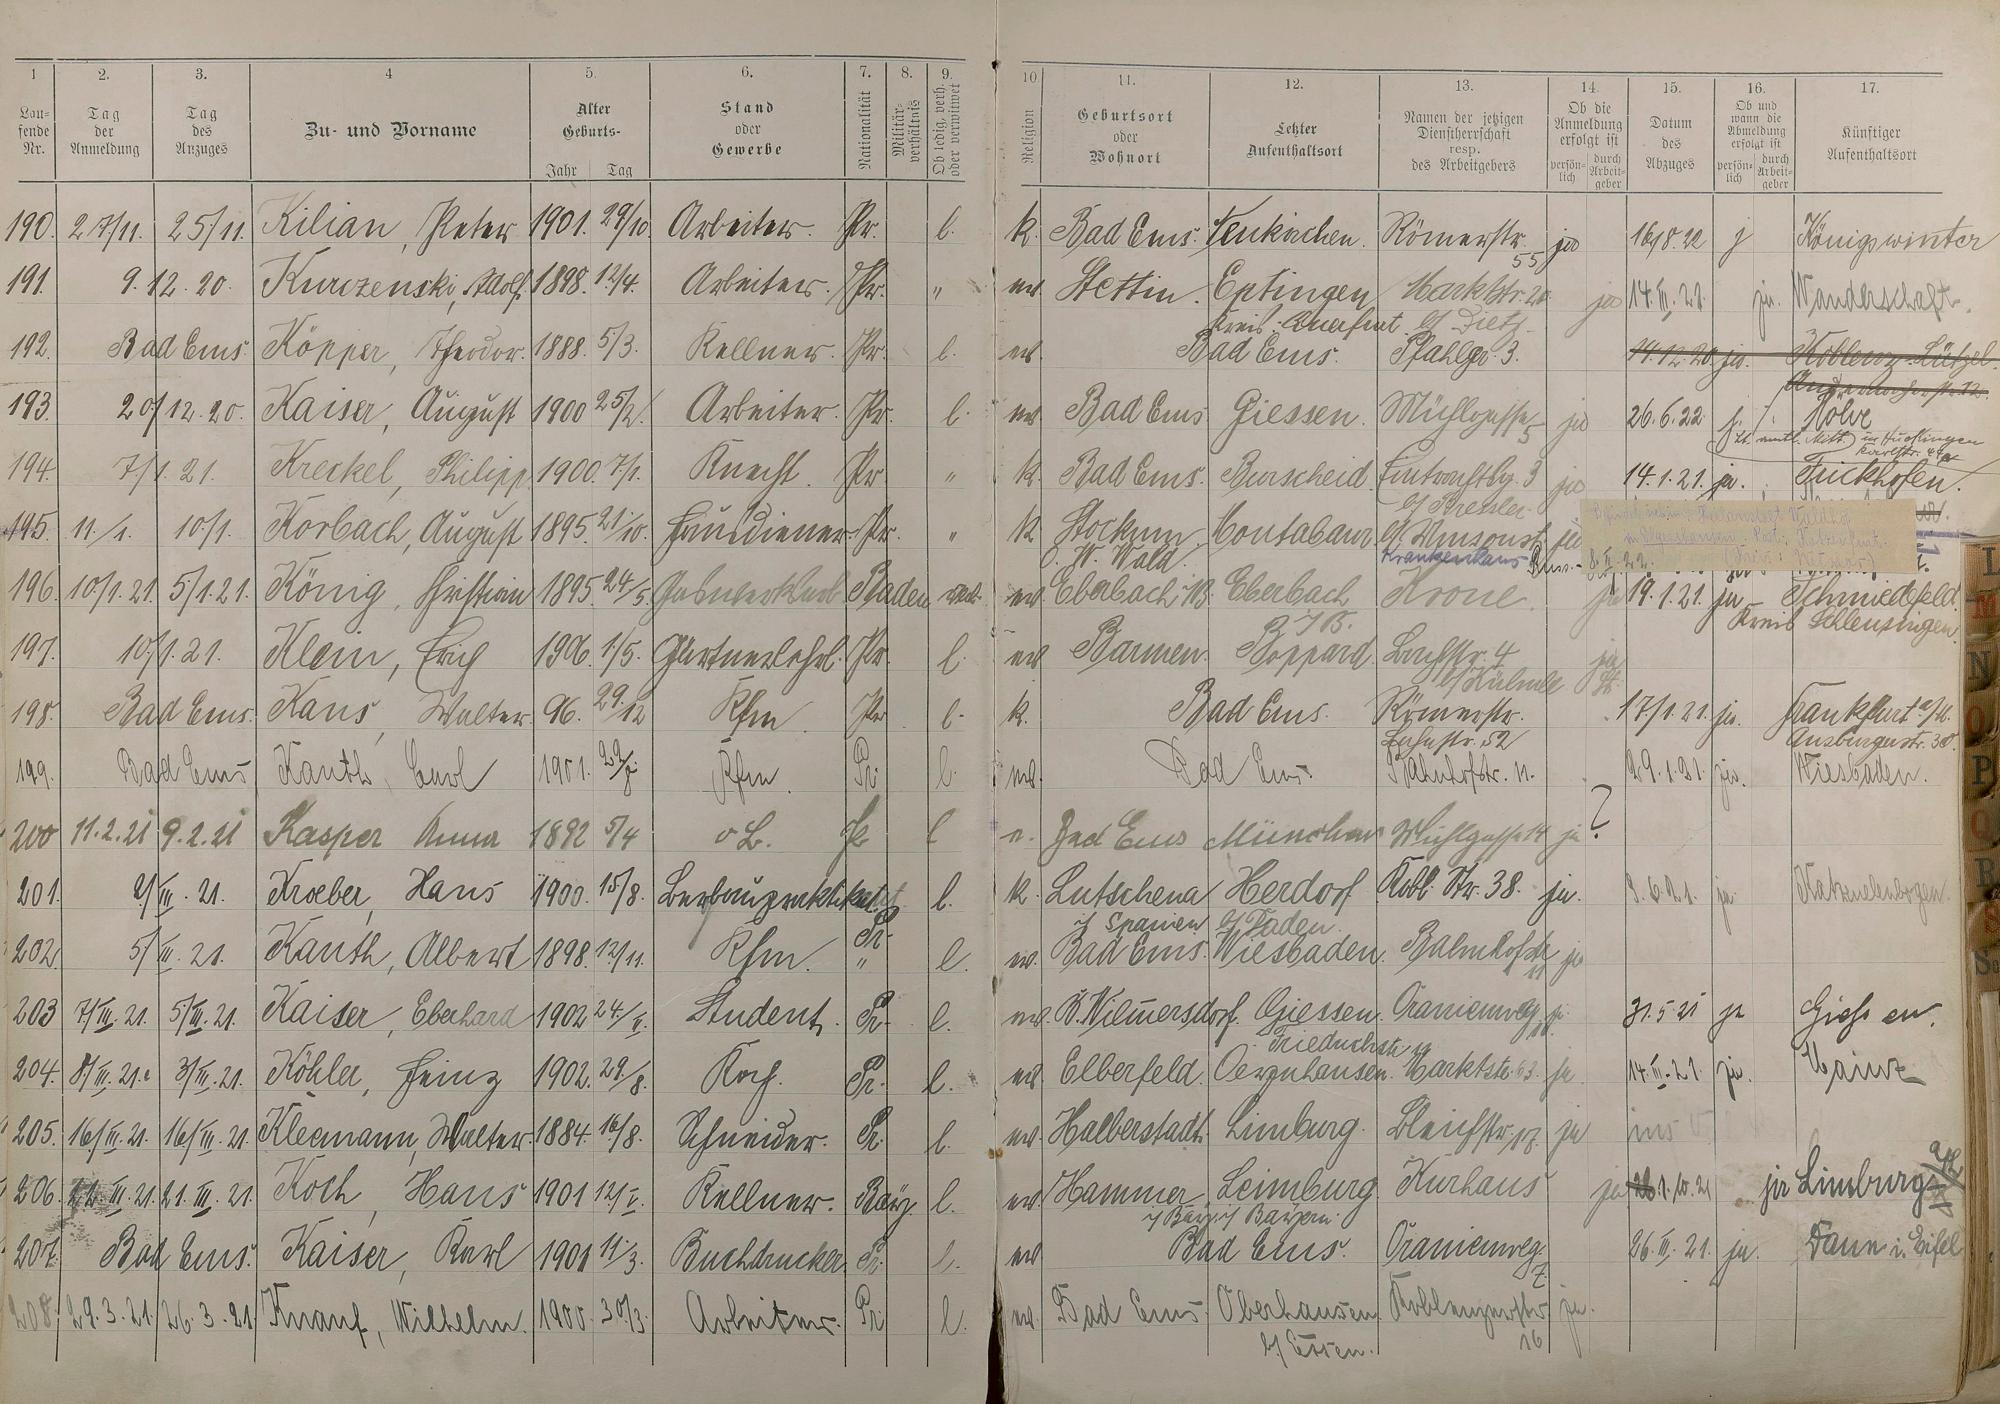 1 2. 3. 4 5. 6. 7. 8. 9. 10 11. 12. 13. 14. 15. 16. 17.
Lau-
fende
Nr.
Tag
der
Anmeldung
Tag
des
Anzuges
Zu- und Vorname
Alter
Geburts-
Jahr Tag
Stand
oder
Gewerbe
Nationalität
Militär-
verhältnis
Ob ledig, verh.
oder verwitwet
Religion
Geburtsort
oder
Wohnort
Letzter
Aufenthaltsort
Namen der jetzigen
Dienstherrschaft
resp.
des Arbeitgebers
Ob die
Anmeldung
erfolgt ist
persön-
lich
durch
Arbeit-
geber
Datum
des
Abzuges
Ob und
wann die
Abmeldung
erfolgt ist
persön-
lich
durch
Arbeit-
geber
Künftiger
Aufenthaltsort
190. 27/11. 25/11. Kilian, Peter 1901. 29/10. Arbeiter. Pr. l. k. Bad Ems. Neukirchen. Römerstr. ja 16/8.22 j Königswinter
55
191. 9.12.20. Kurozenski, Adolf. 1898. 12/4. Arbeiter. Pr. " ev. Stettin. Eptingen Marktstr. 20 ja 14.II.21 ja. Wanderschaft.
Kreis Querfurt b/ Dietz.
192. Bad Ems. Köpper, Theodor. 1888. 5/3. Kellner. Pr. l. ev. Bad Ems. Pfahlgr. 3. 14.12.20 ja. Koblenz-Lützel.
193. 20/12.20. Kaiser, August 1900 25/2. Arbeiter. Pr. l. ev. Bad Ems Giessen. Mühlgasse 5 ja 26.6.22 j.
Lt. amtl. Mitt. in Hüttlingen
194. 7/1.21. Kreckel, Philipp 1900. 7/1. Knecht. Pr. " k. Bad Ems. Burscheid. 3 ja 14.1.21. ja. Frickhofen.
195. 11/1. 10/1. Korbach, August 1895. 21/10. Hausdiener. Pr. " k. Stockum Montabaur
O. W. Wald. Krankenhaus Ems. 8.II.22.
196. 10/1.21. 5/1.21. König, Christian 1895. 24/5. Baden ev. Eberbach i/B. Eberbach Krone. ja 19.1.21. ja Schmiedefeld.
i/B. Kreis Schleusingen.
197. 10/1.21. Klein, Erich 1906. 1/5. Gärtnerlehrl. Pr. l. ev Barmen. Boppard. Bachstr. 4 ja
198. Bad Ems. Kaus, Walter. 96. 29/12 Kfm. Pr l. k. Bad Ems. Römerstr. 17/1.21. ja. Frankfurt a/M.
52
199. Bad Ems Kauth, Carl 1901. Kfm. Pr. l. ev. Bad Ems. Bahnhofstr. 11. 29.1.21. ja. Wiesbaden.
200 11.2.21 9.2.21 Kasper Anna 1892 5/4 o B. Pr l e. Bad Ems München Mühlgasse 14 ja ?
201. 2/III.21. Kroeber, Hans 1900. 15/8. Bergbaupraktikant. Pr. l. k. Lutschena Herdorf Kobl. Str. 38. ja. 8.6.21. ja Katzenelnbogen.
i/ Spanien b/ Daden.
202. 5/III.21. Kauth, Albert 1898. 12/11. Kfm. " l. ev. Bad Ems. Wiesbaden. Bahnhofstr. 11 ja
203 7/III.21. 5/III.21. Kaiser, Eberhard 1902 24/V. Student. Pr. l. ev. B. Wilmersdorf. Giessen. Oranienweg ja 31.5.21 ja Giessen.
204. 8/III.21. 3/III.21. Köhler, Heinz 1902. 29/8. Koch. Pr. l. ev. Elberfeld. Oeynhausen. Marktstr. 63. ja 14.II.21. ja. Mainz
205. 16/III.21. 16/III.21. Kleemann, Walter. 1884. 16/8. Schneider. Pr. l. ev. Halberstadt. Limburg. Bleichstr. 17. ja
206. 22.III.21. 21.III.21. Koch, Hans 1901 12/V. Kellner. Bay. l. ev. Hammer Leimburg Kurhaus ja 1.10.21 ja Limburg
i/ Bay. i/ Bayern.
207. Bad Ems. Kaiser, Karl 1901 11/3. Buchdrucker. Pr. l. ev Bad Ems. Oranienweg. 7. 26.III.21. ja. Daun i. Eifel
208. 29.3.21. 26.3.21. Knauf, Wilhelm. 1900. 30/3. Arbeiter. Pr l. ev. Bad Ems. Oberhausen Koblenzerstr. ja.
b/ Essen. 16
L
M
N
O
P
Q
R
S